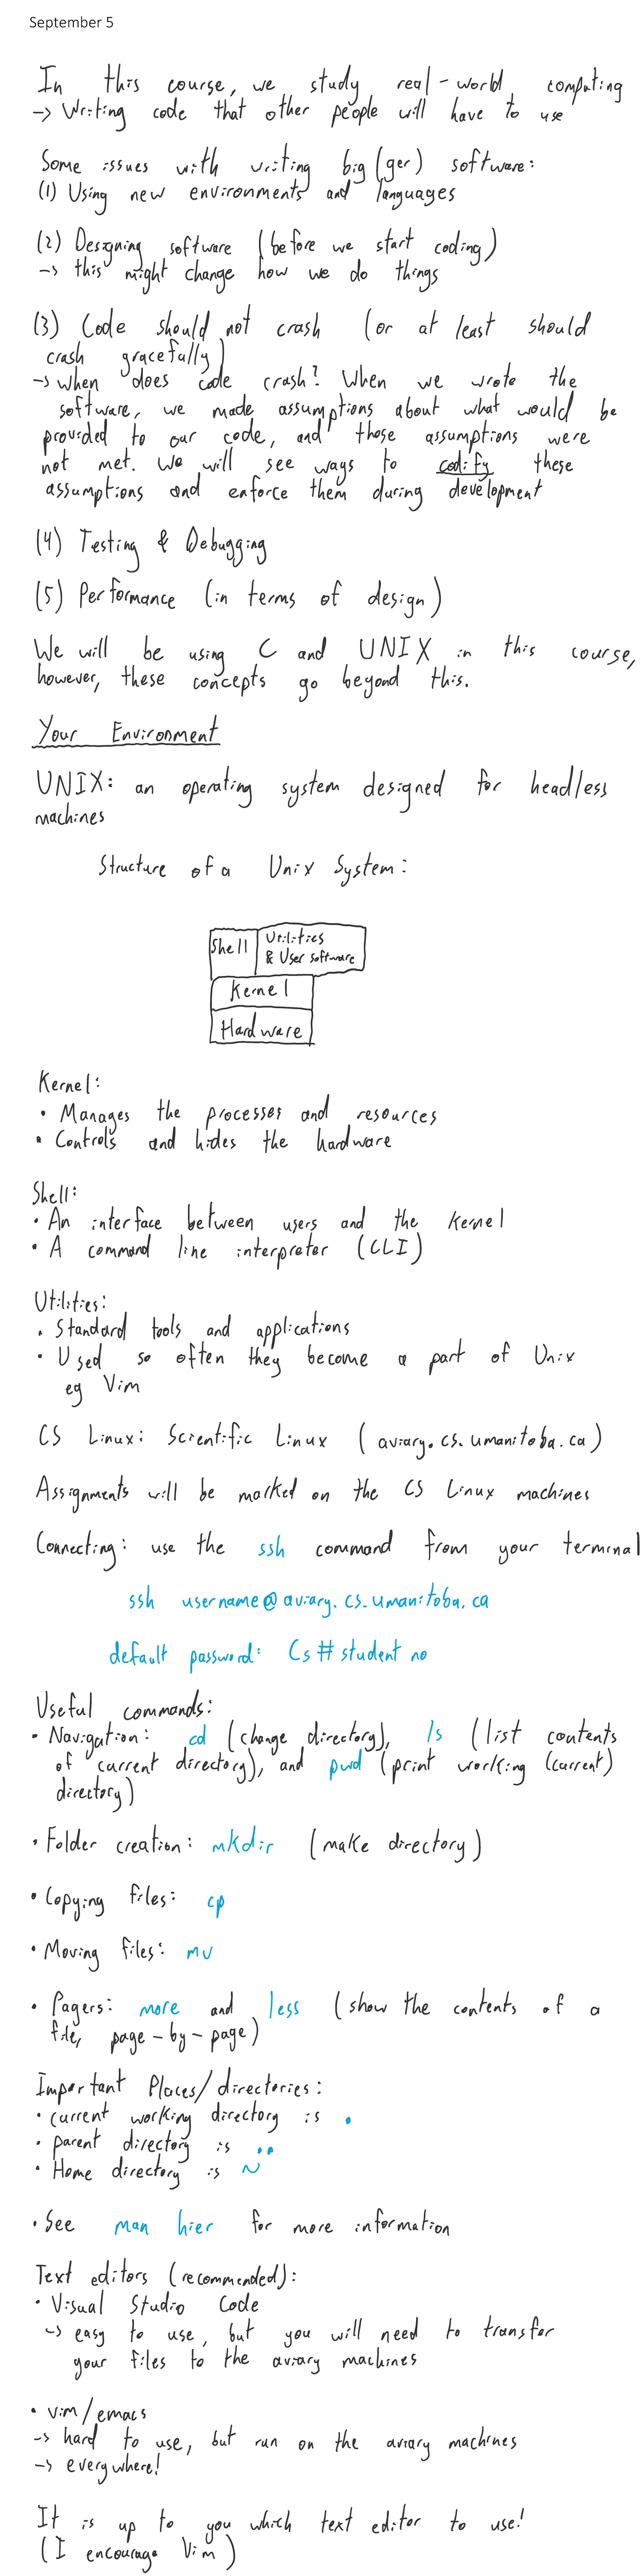 September 5
In this course, we study real-world computing
-> Writing code that other people will have to use
Some issues with writing big(ger) software:
(1) Using new environments and languages
(2) Designing software (before we start coding)
-> this might change how we do things
(3) Code should not crash (or at least should
crash gracefully)
-> when does code crash? When we wrote the
software, we made assumptions about what would be
provided to our code, and those assumptions were
not met. We will see ways to codify these
assumptions and enforce them during development
(4) Testing & Debugging
(5) Performance (in terms of design)
We will be using C and UNIX in this course,
however, these concepts go beyond this.
Your Environment
UNIX: an operating system designed for headless
machines
Structure of a Unix System:
Shell
Utilities
& User software
Kernel
Hardware
Kernel:
• Manages the processes and resources
• Controls and hides the hardware
Shell:
• An interface between users and the Kernel
• A command line interpreter (CLI)
Utilities:
• Standard tools and applications
• Used so often they become a part of Unix
eg Vim
CS Linux: Scientific Linux (aviary.cs.umanitoba.ca)
Assignments will be marked on the CS Linux machines
Connecting: use the ssh command from your terminal
ssh username@aviary.cs.umanitoba.ca
default password: Cs#student no
Useful commands:
• Navigation: cd (change directory), ls (list contents
of current directory), and pwd (print working (current)
directory)
• Folder creation: mkdir (make directory)
• Copying files: cp
• Moving files: mv
• Pagers: more and less (show the contents of a
file, page-by-page)
Important Places/directories:
• current working directory is .
• parent directory is ..
• Home directory is ~
• See man hier for more information
Text editors (recommended):
• Visual Studio Code
-> easy to use, but you will need to transfer
your files to the aviary machines
• vim/emacs
-> hard to use, but run on the aviary machines
-> everywhere!
It is up to you which text editor to use!
(I encourage Vim)